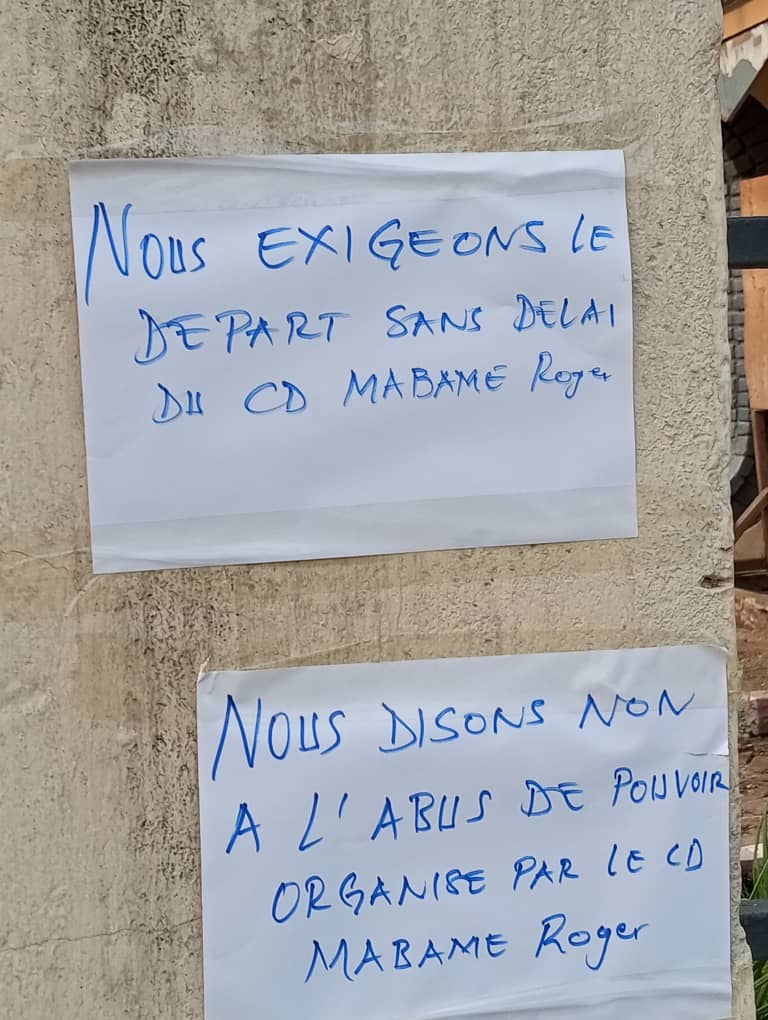 Nous EXIGEONS LE
DEPART SANS DELAI
DU CD MABAME Roger
NOUS DISONS NON
A L'ABUS DE POUVOIR
ORGANISE PAR LE CD
MABAME Roger